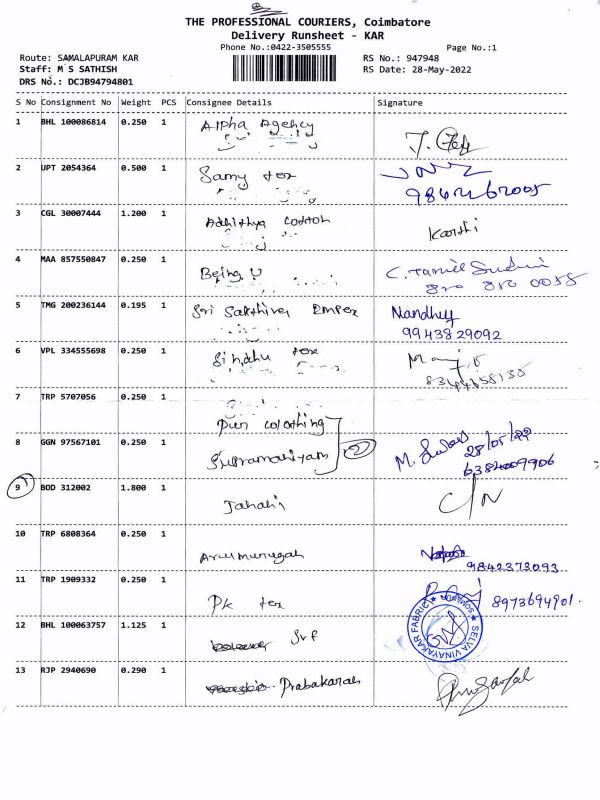 THE PROFESSIONAL COURIERS, Coimbatore
Delivery Runsheet - KAR
Phone No.:0422-3505555
Page No.:1
Route: SAMALAPURAM KAR
RS No.: 947948
Staff: M S SATHISH
RS Date: 28-May-2022
DRS No.: DCJB94794801
S No Consignment No Weight PCS Consignee Details Signature
1 BHL 100086814 0.250 1 Alpha Agency
2 UPT 2054364 0.500 1 Samy tex
3 CGL 30007444 1.200 1 Adhithya cotton
4 MAA 857550847 0.250 1 Being U
C. Tamil
810 810 0058
5 TMG 200236144 0.195 1 Sri Sakthivel Impex Nandhu
9943829092
6 VPL 334555698 0.250 1 Sindhu tex
7 TRP 5707056 0.250 1
8 GGN 97567101 0.250 1 Subramaniyam 2 M. 28/05/22
6384009906
9 BOD 312002 1.800 1 C/N
10 TRP 6808364 0.250 1 Arulmurugan
9842373093
11 TRP 1909332 0.250 1 Pk tex 8973694901.
12 BHL 100063757 1.125 1 SVF
SELVA VINAYAKAR FABRIC
13 RJP 2940690 0.290 1 Prabakaran